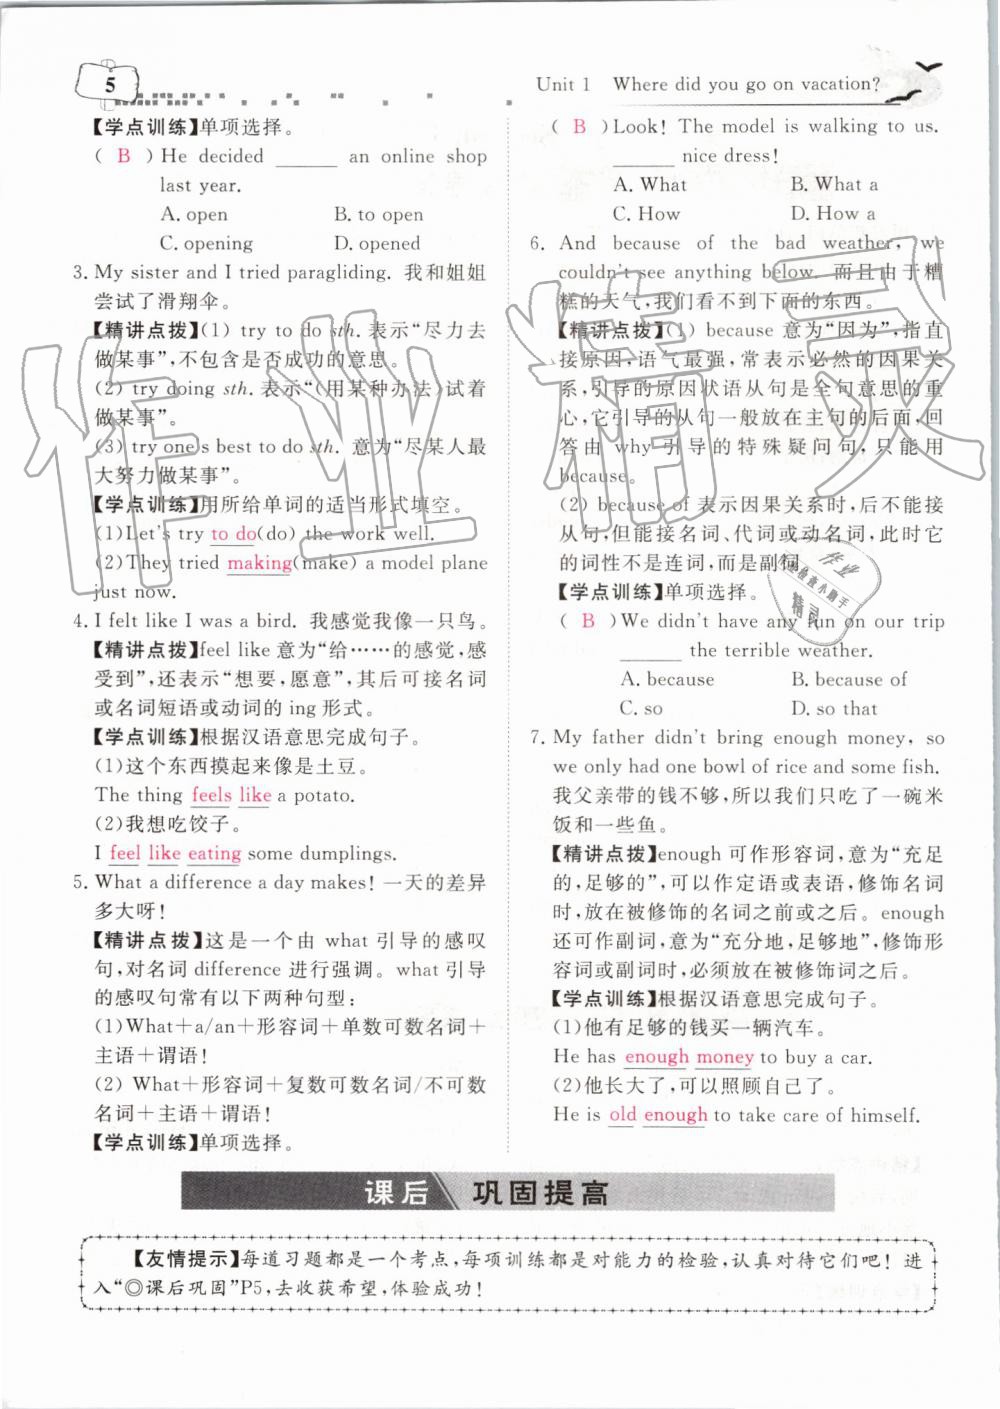 5
Unit 1 Where did you go on vacation?
【学点训练】单项选择。
( B )He decided ______ an online shop
last year.
A. open B. to open
C. opening D. opened
3. My sister and I tried paragliding. 我和姐姐
尝试了滑翔伞。
【精讲点拨】(1) try to do sth. 表示“尽力去
做某事”,不包含是否成功的意思。
(2) try doing sth. 表示“(用某种办法)试着
做某事”。
(3) try one's best to do sth. 意为“尽某人最
大努力做某事”。
【学点训练】用所给单词的适当形式填空。
(1)Let's try to do(do) the work well.
(2)They tried making(make) a model plane
just now.
4. I felt like I was a bird. 我感觉我像一只鸟。
【精讲点拨】feel like 意为“给……的感觉,感
受到”,还表示“想要,愿意”,其后可接名词
或名词短语或动词的 ing 形式。
【学点训练】根据汉语意思完成句子。
(1)这个东西摸起来像是土豆。
The thing feels like a potato.
(2)我想吃饺子。
I feel like eating some dumplings.
5. What a difference a day makes! 一天的差异
多大呀!
【精讲点拨】这是一个由 what 引导的感叹
句,对名词 difference 进行强调。what 引导
的感叹句常有以下两种句型:
(1)What+a/an+形容词+单数可数名词+
主语+谓语!
(2) What+形容词+复数可数名词/不可数
名词+主语+谓语!
【学点训练】单项选择。
( B )Look! The model is walking to us.
______ nice dress!
A. What B. What a
C. How D. How a
6. And because of the bad weather, we
couldn't see anything below. 而且由于糟
糕的天气,我们看不到下面的东西。
【精讲点拨】(1) because 意为“因为”,指直
接原因,语气最强,常表示必然的因果关
系,引导的原因状语从句是全句意思的重
心,它引导的从句一般放在主句的后面,回
答由 why 引导的特殊疑问句,只能用
because。
(2) because of 表示因果关系时,后不能接
从句,但能接名词、代词或动名词,此时它
的词性不是连词,而是副词。
【学点训练】单项选择。
( B )We didn't have any fun on our trip
______ the terrible weather.
A. because B. because of
C. so D. so that
7. My father didn't bring enough money, so
we only had one bowl of rice and some fish.
我父亲带的钱不够,所以我们只吃了一碗米
饭和一些鱼。
【精讲点拨】enough 可作形容词,意为“充足
的,足够的”,可以作定语或表语,修饰名词
时,放在被修饰的名词之前或之后。enough
还可作副词,意为“充分地,足够地”,修饰形
容词或副词时,必须放在被修饰词之后。
【学点训练】根据汉语意思完成句子。
(1)他有足够的钱买一辆汽车。
He has enough money to buy a car.
(2)他长大了,可以照顾自己了。
He is old enough to take care of himself.
课后 巩固提高
【友情提示】每道习题都是一个考点,每项训练都是对能力的检验,认真对待它们吧! 进
入“◎课后巩固”P5,去收获希望,体验成功!
作业精灵
作业
检查小助手
精灵